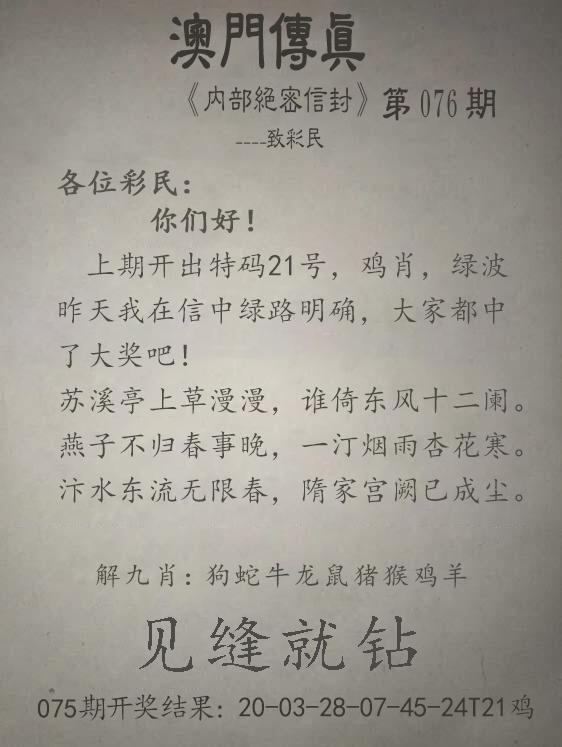 澳門傳真
《内部絕密信封》第076期
----致彩民
各位彩民：
你们好！
上期开出特码21号，鸡肖，绿波
昨天我在信中绿路明确，大家都中
了大奖吧！
苏溪亭上草漫漫，谁倚东风十二阑。
燕子不归春事晚，一汀烟雨杏花寒。
汴水东流无限春，隋家宫阙已成尘。
解九肖：狗蛇牛龙鼠猪猴鸡羊
见缝就钻
075期开奖结果：20-03-28-07-45-24T21鸡